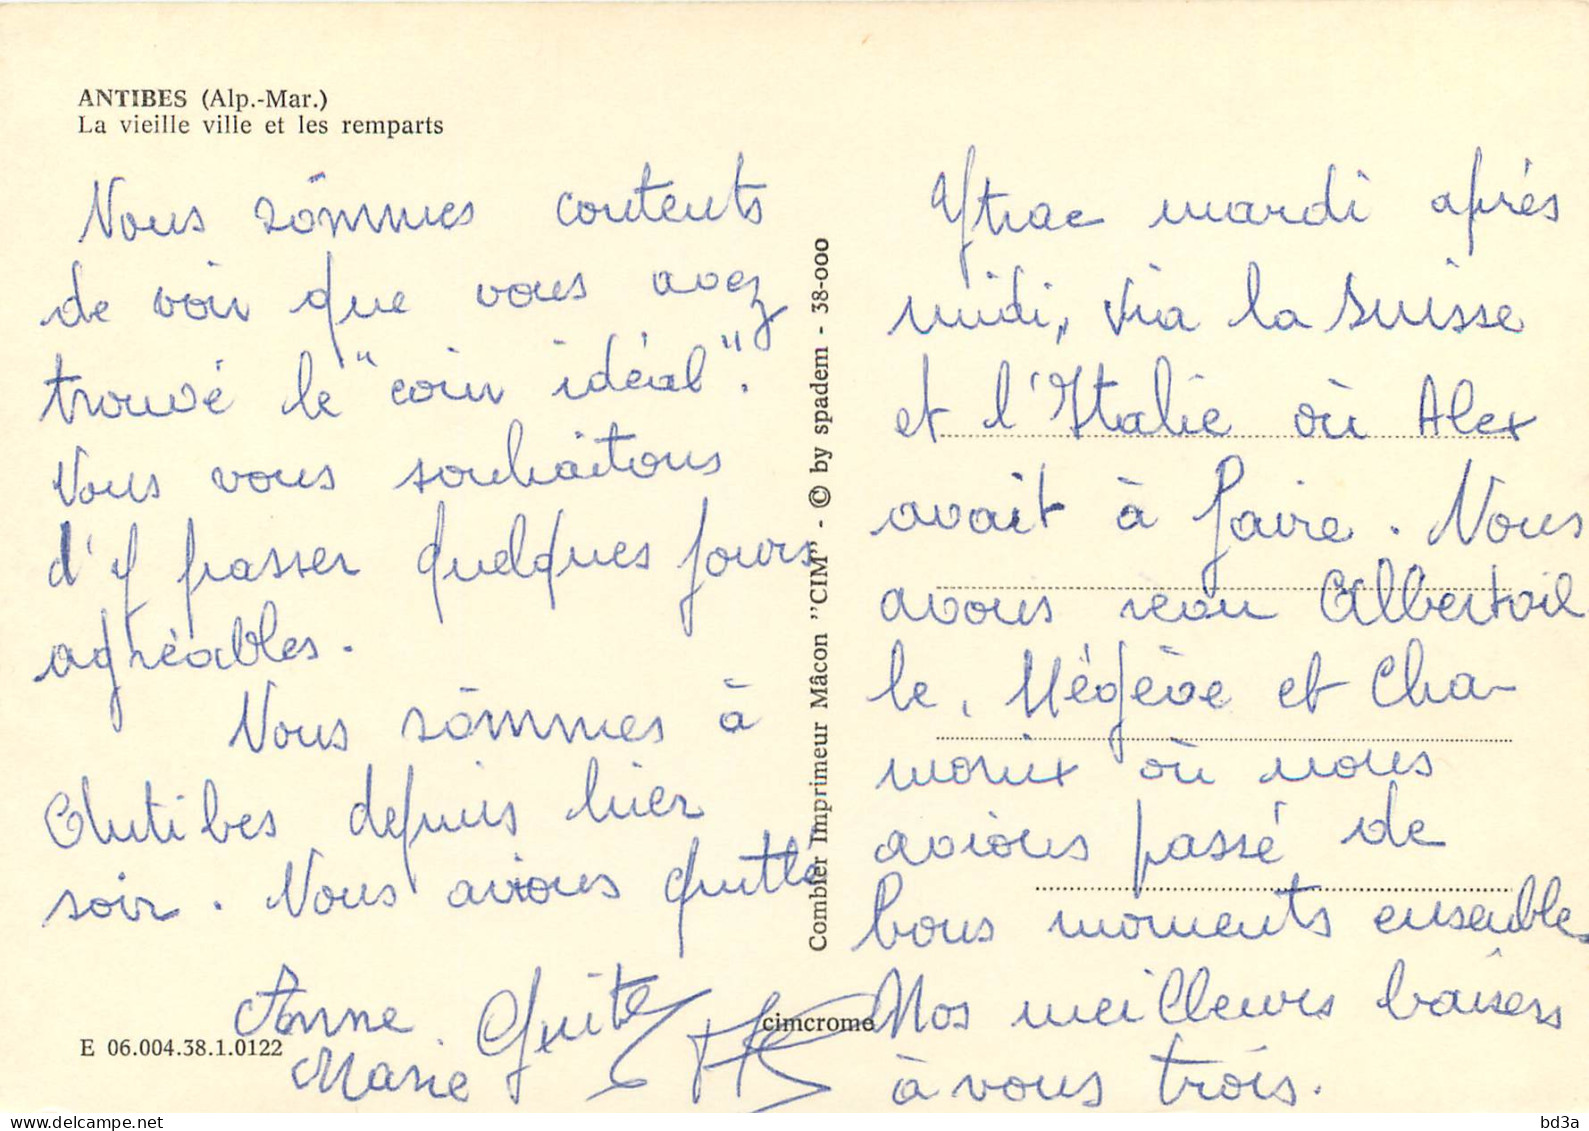 ANTIBES (Alp.-Mar.)
La vieille ville et les remparts
Nous sommes contents
de voir que vous avez
trouvé le "coin idéal".
Vous vous souhaitons
d'y passer quelques jours
agréables.
Nous sommes à
Antibes depuis hier
soir. Nous avions quitté
Anne
Marie
E 06.004.38.1.0122
Combier Imprimeur Mâcon "CIM" - © by spadem - 38-000
cimcrome
Ytrac mardi après
midi, via la Suisse
et l'Italie où Alex
avait à faire. Nous
avons revu Albertvil
le, Mégève et Cha-
monix où nous
avions passé de
bons moments ensemble.
Nos meilleurs baisers
à vous trois.